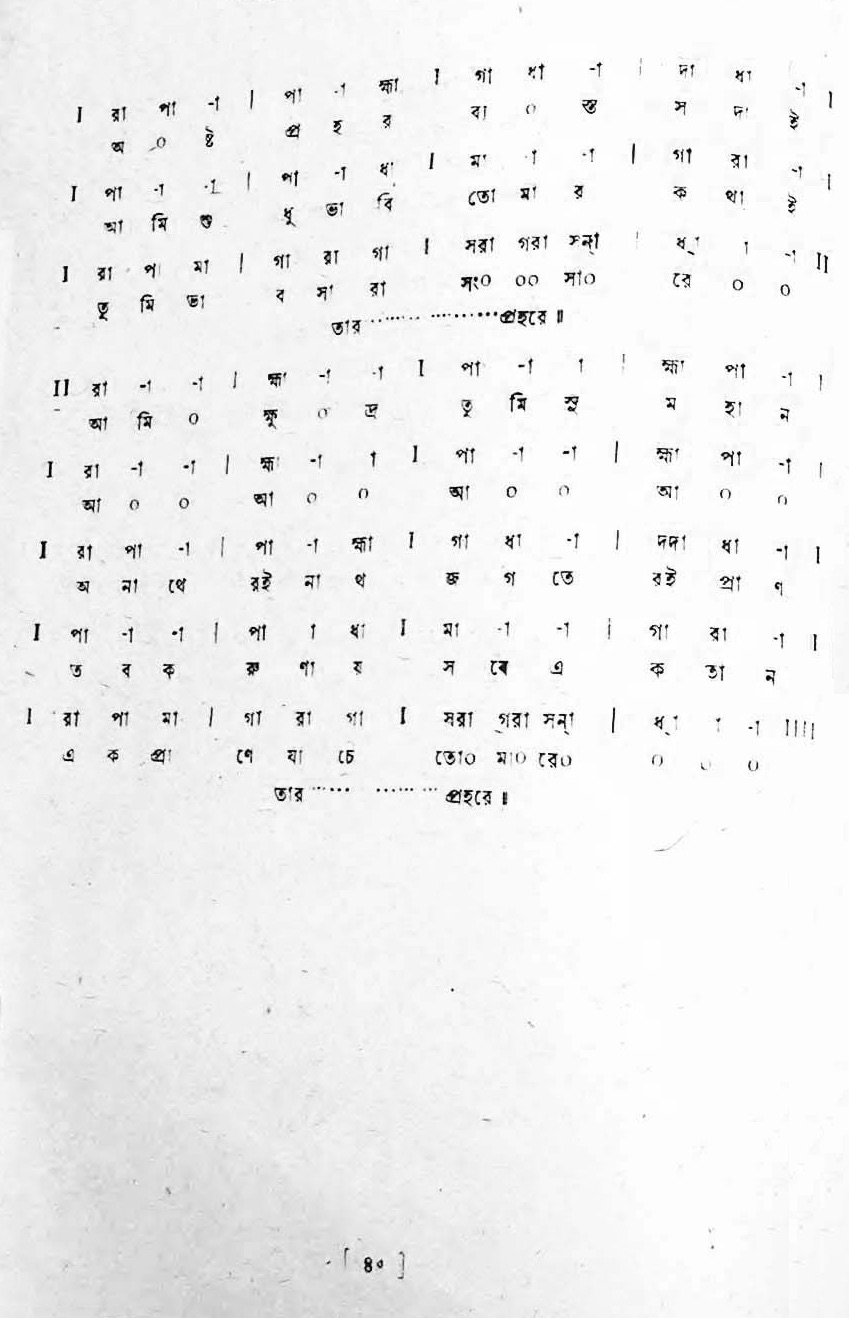 I রা পা -া | পা -া হ্মা I গা ধা -া | দা ধা -া I
অ ০ ষ্ট প্র হ র ব্য ০ স্ত স দা ই
I পা -া -া | পা -া ধা I মা -া -া | গা রা -া I
আ মি শু ধু ভা বি তো মা র ক থা ই
I রা পা মা | গা রা গা I সরা গরা সন্া | ধ্া া -া II
তু মি ভা ব সা রা সং০ ০০ সা০ রে ০ ০
তার ............ প্রহরে॥
II রা -া -া | হ্মা -া -া I পা -া া | হ্মা পা -া I
আ মি ০ ক্ষু ০ দ্র তু মি সু ম হা ন
I রা -া -া | হ্মা -া া I পা -া -া | হ্মা পা -া I
আ ০ ০ আ ০ ০ আ ০ ০ আ ০ ০
I রা পা -া | পা -া হ্মা I গা ধা -া | দদা ধা -া I
অ না থে রই না থ জ গ তে রই প্রা ণ
I পা -া -া | পা া ধা I মা -া -া | গা রা -া I
ত ব ক রু ণা য় স বে এ ক তা ন
I রা পা মা | গা রা গা I সরা গ্রা সন্া | ধ্া া -া IIII
এ ক প্রা ণে যা চে তো০ মা০ রে০ ০ ০ ০
তার ............ প্রহরে॥
[ ৪০ ]